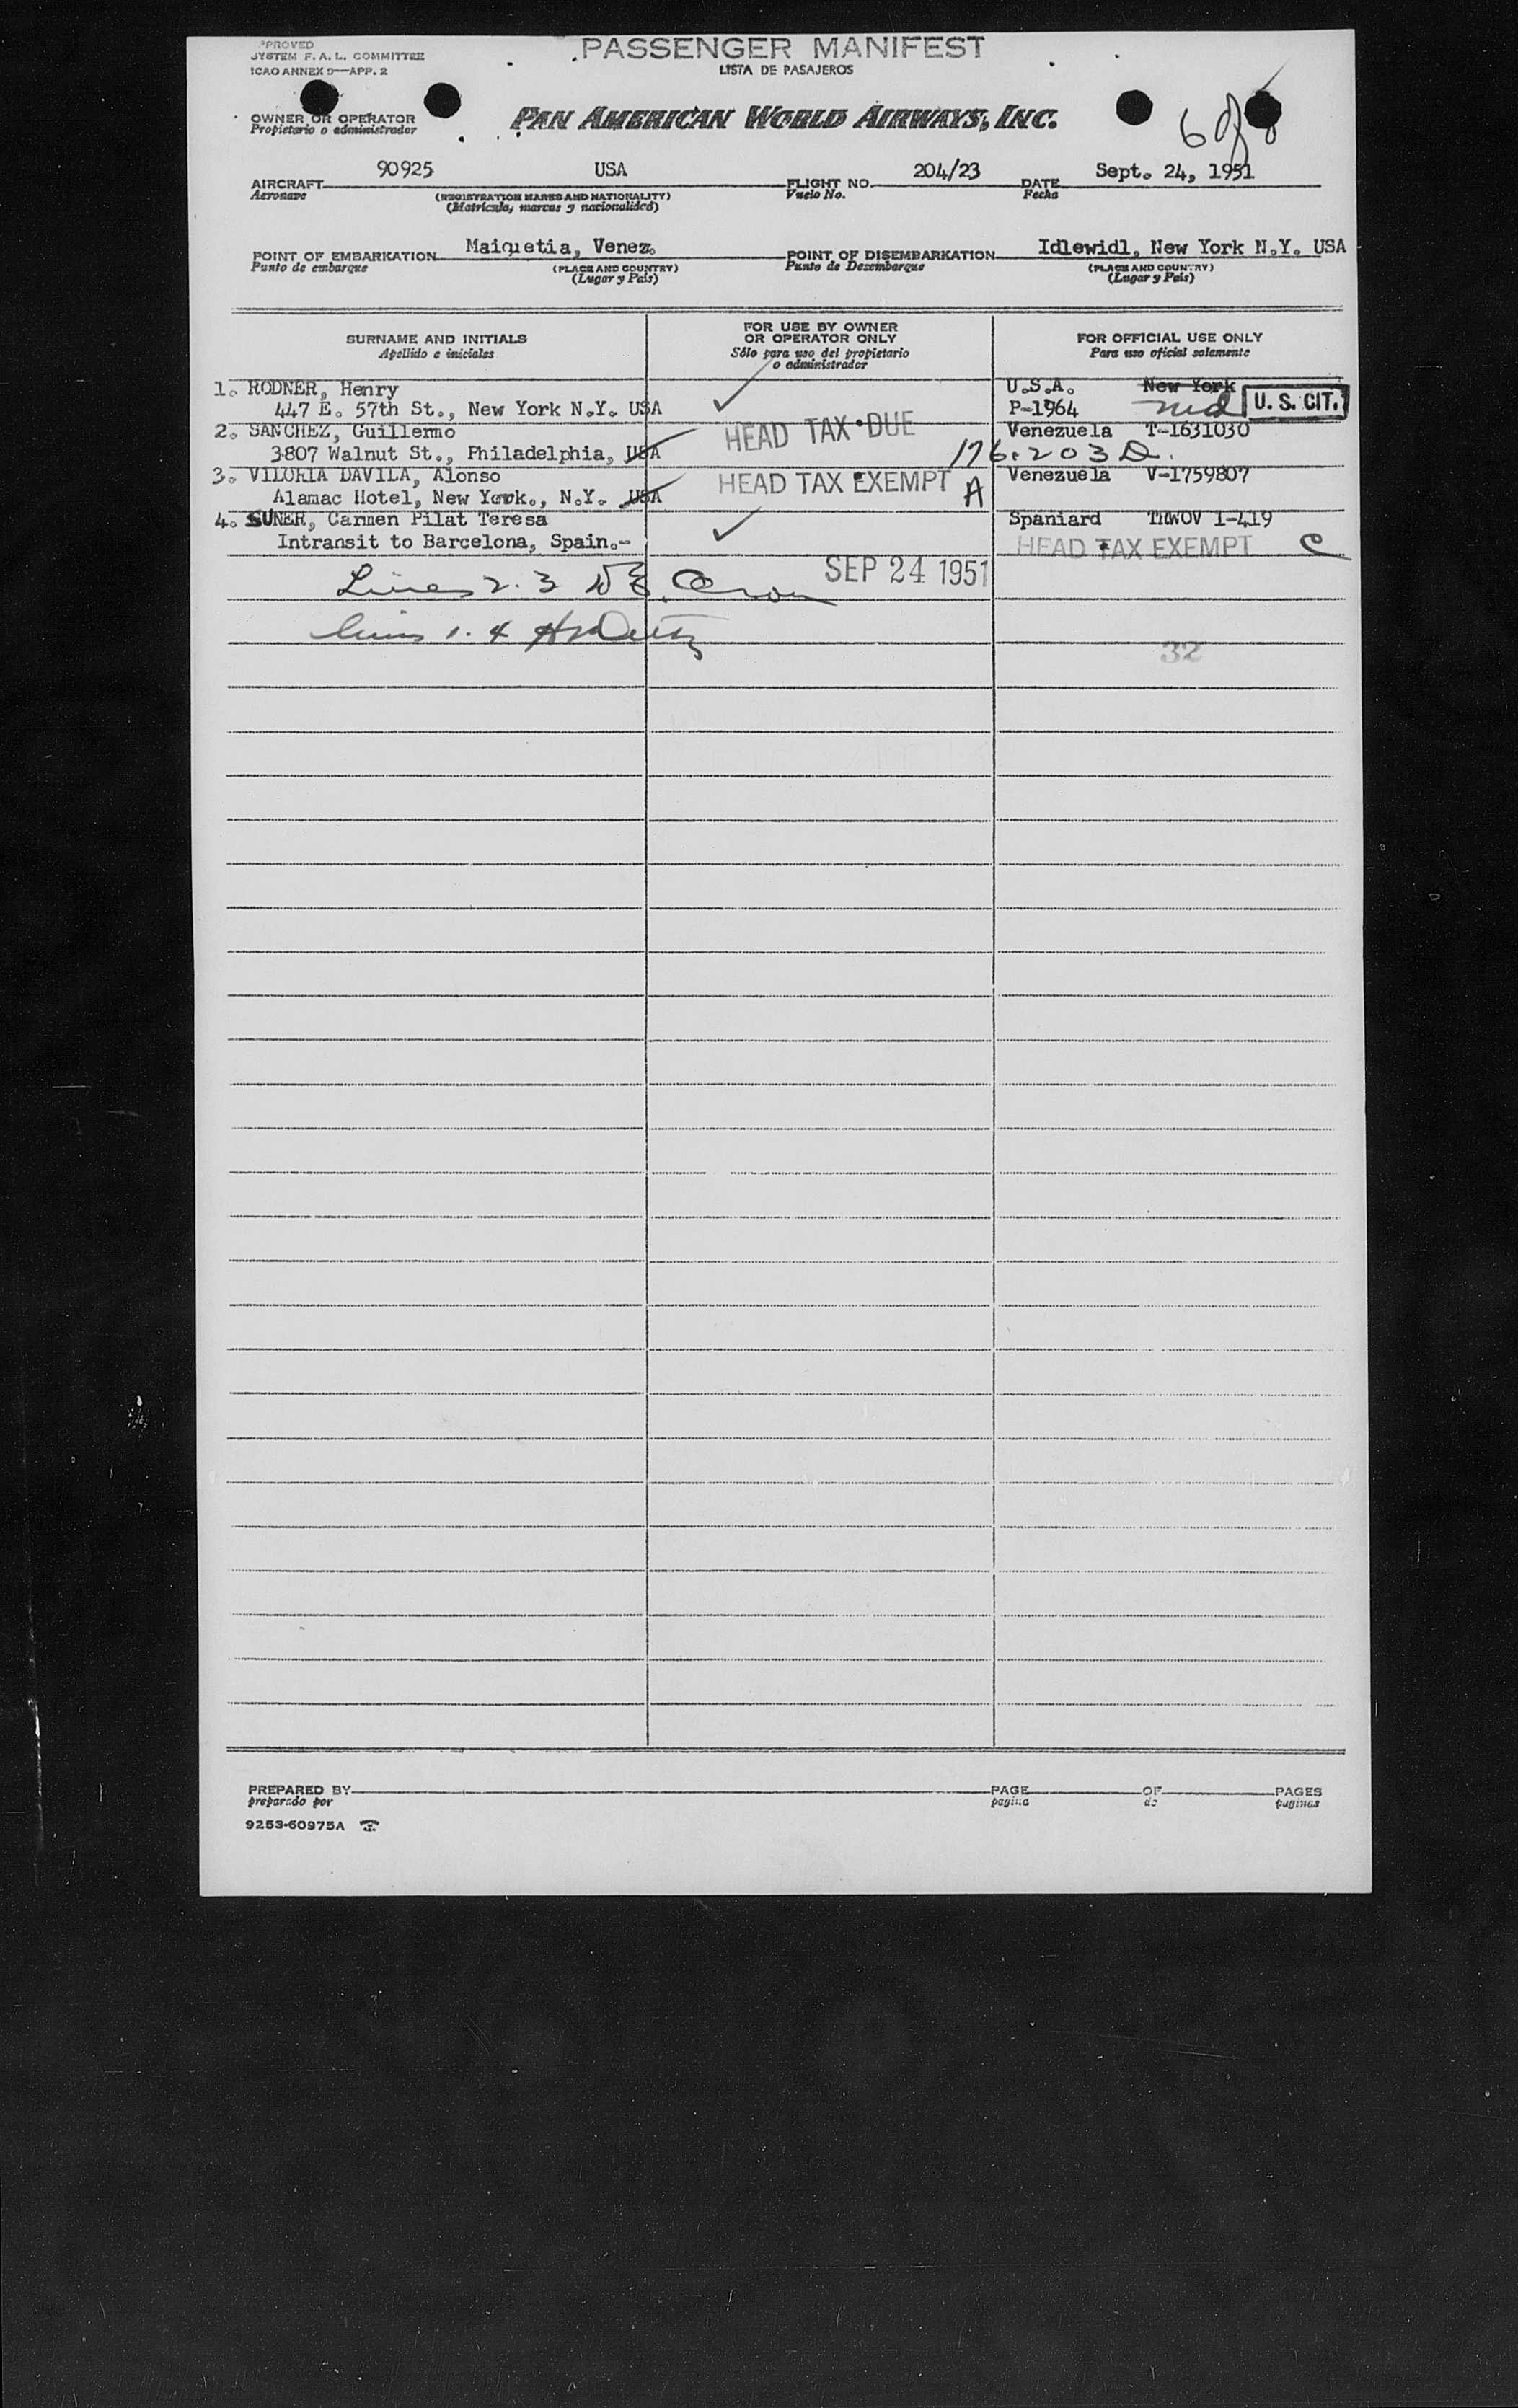 PPROVED
SYSTEM F. A. L. COMMITTEE
ICAO ANNEX 9—APP. 2
PASSENGER MANIFEST
LISTA DE PASAJEROS
OWNER OR OPERATOR
Propietario o administrador
PAN AMERICAN WORLD AIRWAYS, INC.
6 of
AIRCRAFT 90925 USA FLIGHT NO. 204/23 DATE Sept. 24, 1951
Aeronave (REGISTRATION MARKS AND NATIONALITY) Vuelo No. Fecha
(Matricula, marcas y nacionalidad)
POINT OF EMBARKATION Maiquetia, Venez. POINT OF DISEMBARKATION Idlewidl, New York N.Y. USA
Punto de embarque (PLACE AND COUNTRY) Punto de Desembarque (PLACE AND COUNTRY)
(Lugar y País) (Lugar y País)
SURNAME AND INITIALS
Apellido e iniciales
FOR USE BY OWNER
OR OPERATOR ONLY
Sólo para uso del propietario
o administrador
FOR OFFICIAL USE ONLY
Para uso oficial solamente
1. RODNER, Henry U.S.A. New York
447 E. 57th St., New York N.Y. USA P-1964 U. S. CIT.
2. SANCHEZ, Guillermo HEAD TAX DUE Venezuela T-1631030
3807 Walnut St., Philadelphia, USA 176.203 D.
3. VILORIA DAVILA, Alonso HEAD TAX EXEMPT A Venezuela V-1759807
Alamac Hotel, New York., N.Y. USA
4. SUNER, Carmen Pilat Teresa Spaniard TRWOV 1-419
Intransit to Barcelona, Spain.- HEAD TAX EXEMPT C
Lines 2. 3 SEP 24 1951
Lines 1. 4
32
PREPARED BY PAGE OF PAGES
preparado por pagina de paginas
9253-60975A